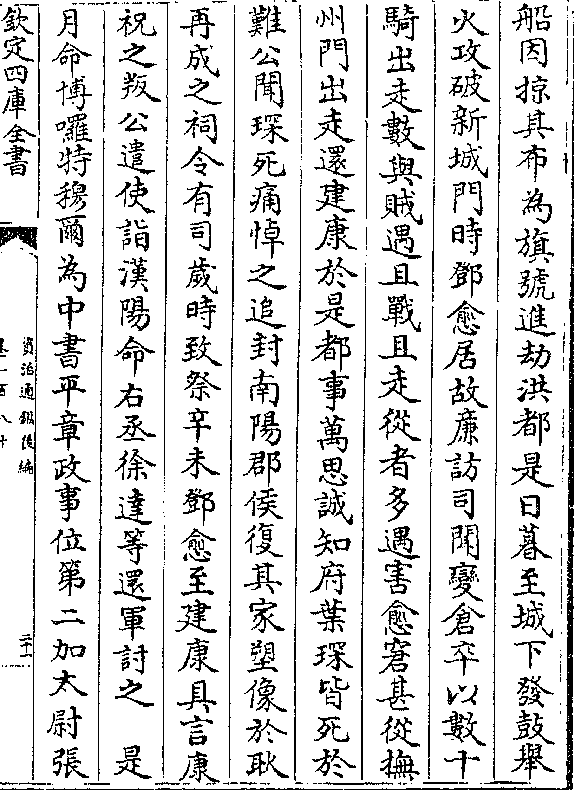 船因掠其布為旗號進劫洪都是日暮至城下發鼓舉
火攻破新城門時鄧愈居故廉訪司聞變倉卒以數十
騎出走數與賊遇且戰且走從者多遇害愈窘甚從撫
州門出走還建康於是都事萬思誠知府葉琛皆死於
難公聞琛死痛悼之追封南陽郡侯復其家塑像於耿
再成之祠令有司歲時致祭辛未鄧愈至建康具言康
祝之叛公遣使詣漢陽命右丞徐達等還軍討之　是
月命博囉特穆爾為中書平章政事位第二加太尉張
欽定四庫全書
資治通鑑後編
卷一百八十
三十一